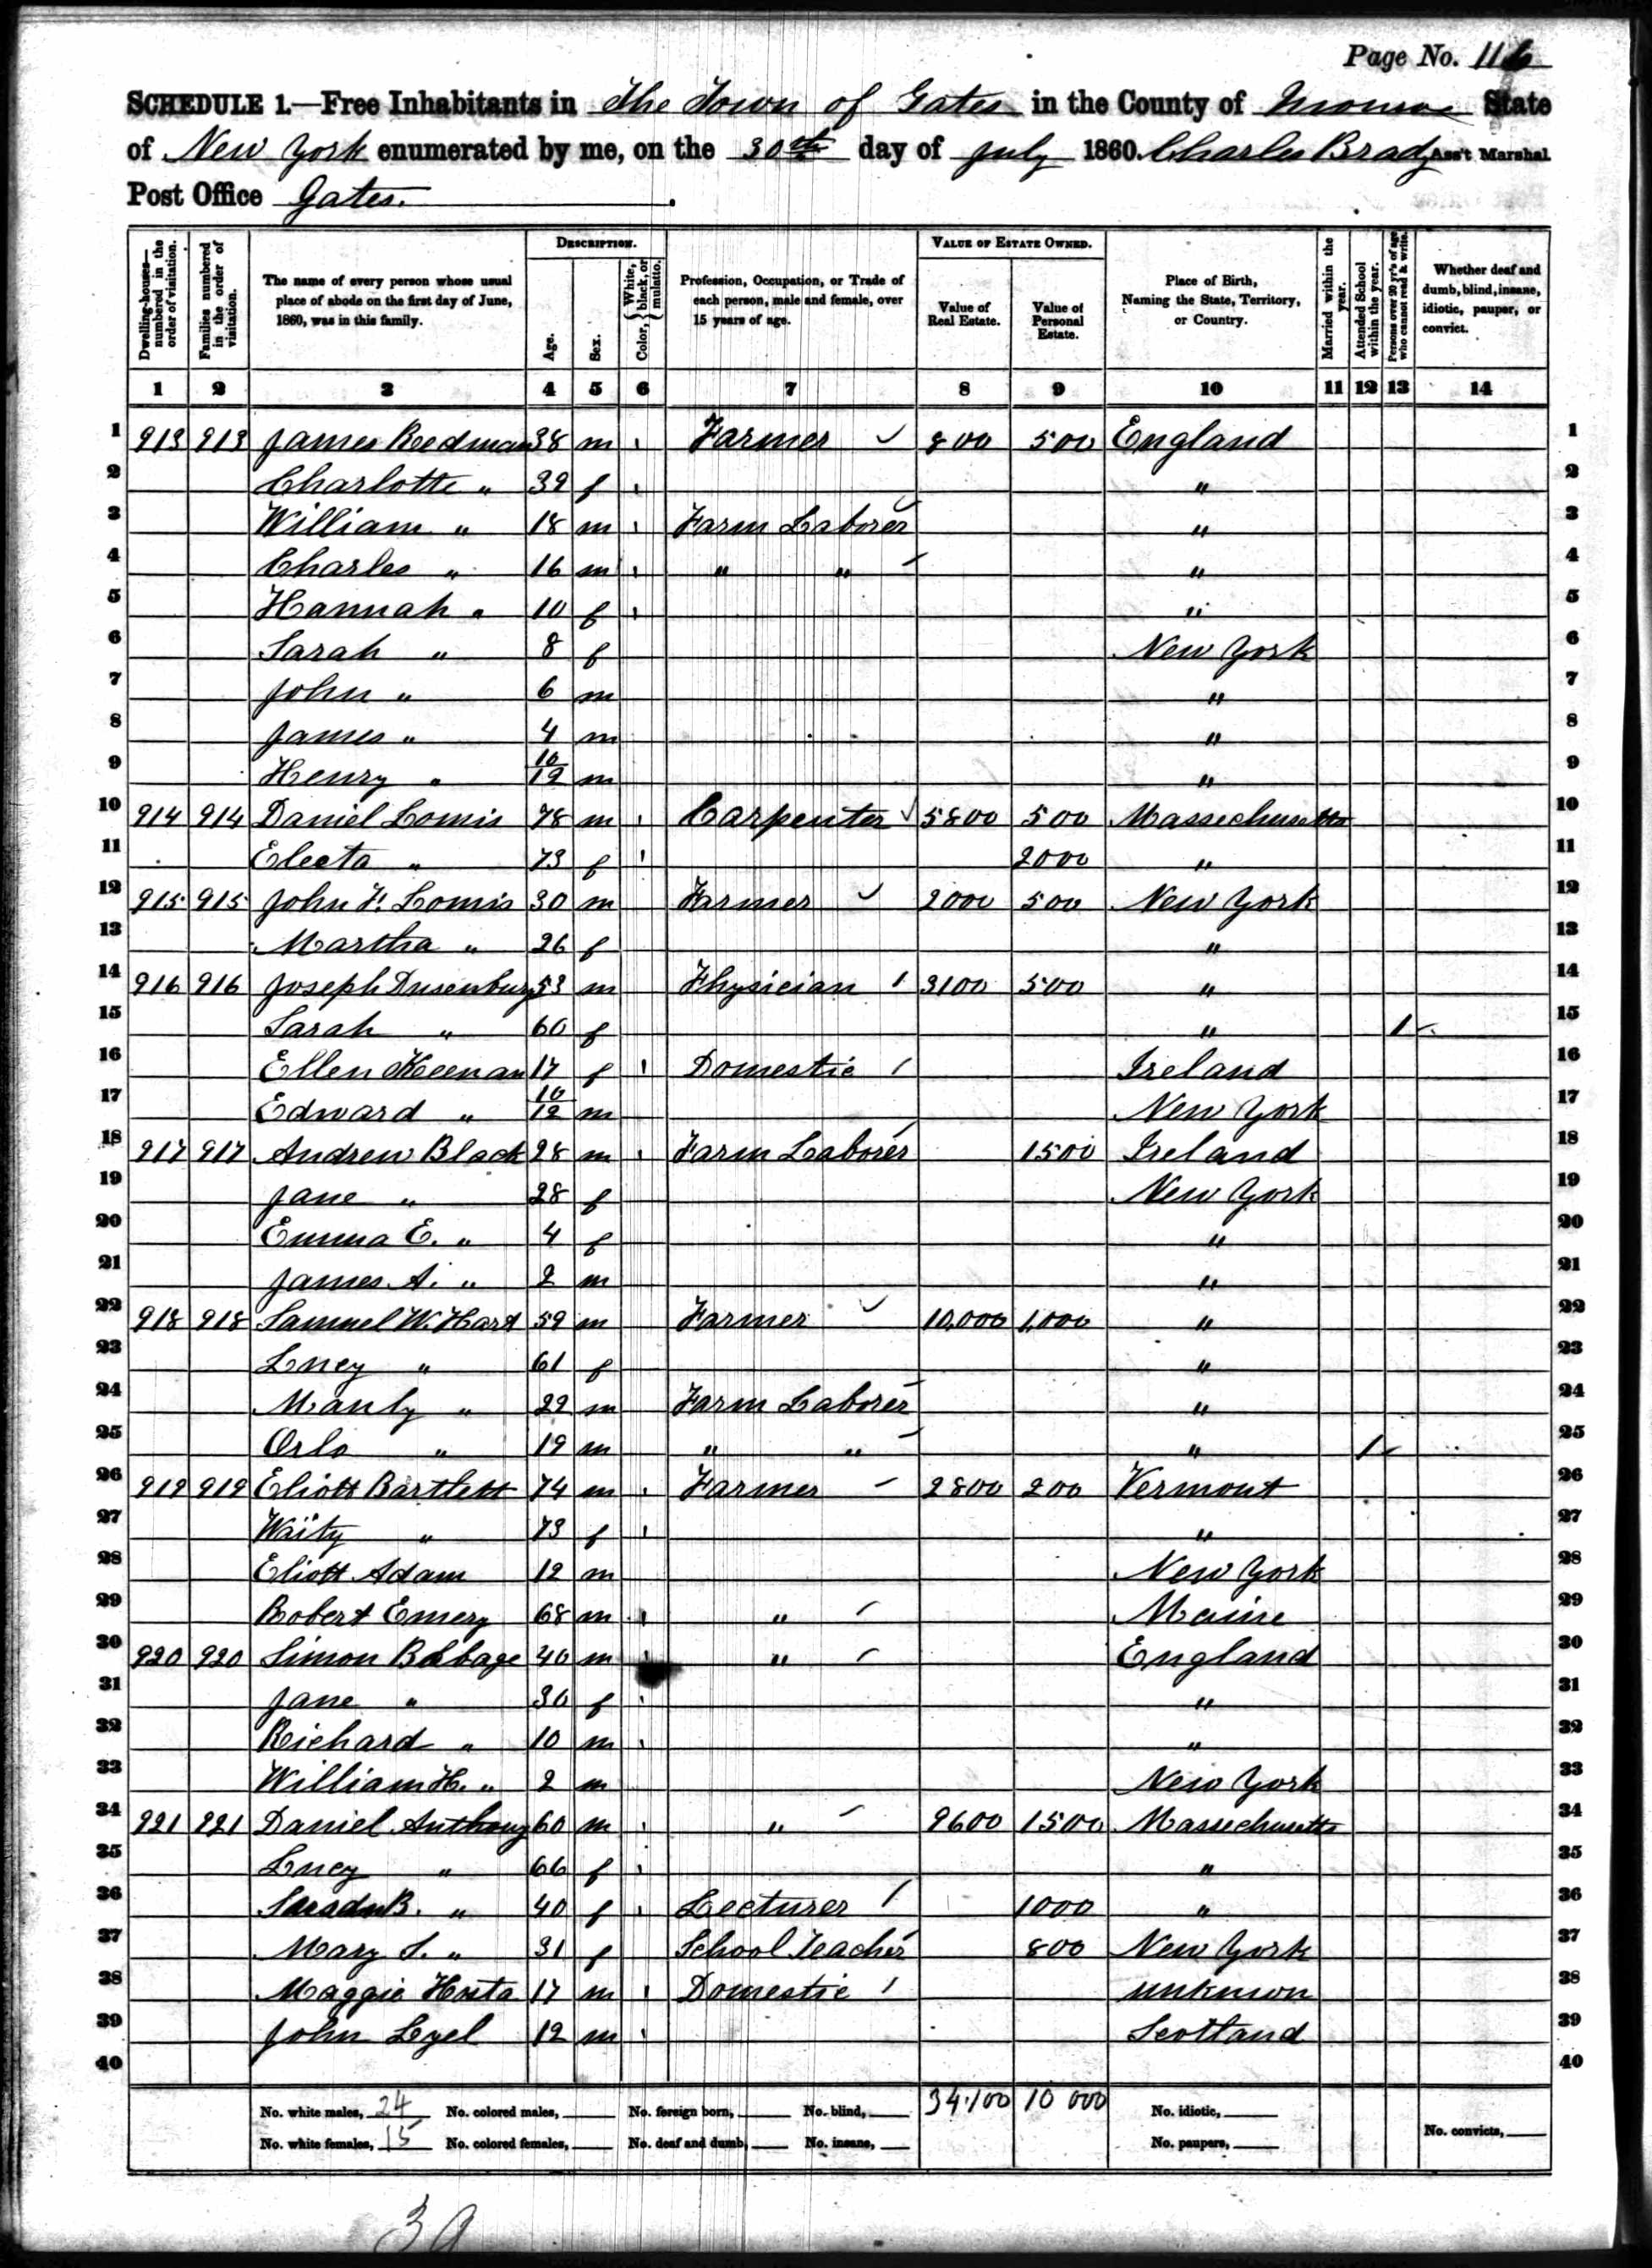 Page No. 116
SCHEDULE 1.—Free Inhabitants in The Town of Gates in the County of Monroe State
of New York enumerated by me, on the 30th day of July 1860. Charles Brady Ass't Marshal
Post Office Gates.
Dwelling-houses—numbered in the order of visitation.
Families numbered in the order of visitation.
The name of every person whose usual place of abode on the first day of June, 1860, was in this family.
DESCRIPTION.
Age.
Sex.
Color, { White, black, or mulatto.
Profession, Occupation, or Trade of each person, male and female, over 15 years of age.
VALUE OF ESTATE OWNED.
Value of Real Estate.
Value of Personal Estate.
Place of Birth, Naming the State, Territory, or Country.
Married within the year.
Attended School within the year.
Persons over 20 y'rs of age who cannot read & write.
Whether deaf and dumb, blind, insane, idiotic, pauper, or convict.
1 2 3 4 5 6 7 8 9 10 11 12 13 14
1 913 913 James Reedman 38 m Farmer 800 500 England 1
2 Charlotte " 39 f " 2
3 William " 18 m Farm Laborer " 3
4 Charles " 16 m " " " 4
5 Hannah " 10 f " 5
6 Sarah " 8 f New York 6
7 John " 6 m " 7
8 James " 4 m " 8
9 Henry " 10/12 m " 9
10 914 914 Daniel Lomis 78 m Carpenter 5800 500 Massechusetts 10
11 Electa " 73 f 2000 " 11
12 915 915 John F. Lomis 30 m Farmer 2000 500 New York 12
13 Martha " 26 f " 13
14 916 916 Joseph Dusenbury 53 m Physician 3100 500 " 14
15 Sarah " 60 f " 1 15
16 Ellen Keenan 17 f Domestic Ireland 16
17 Edward " 10/12 m New York 17
18 917 917 Andrew Black 28 m Farm Laborer 1500 Ireland 18
19 Jane " 28 f New York 19
20 Emma E. " 4 f " 20
21 James A. " 2 m " 21
22 918 918 Samuel W. Hart 59 m Farmer 10,000 1,000 " 22
23 Lucy " 61 f " 23
24 Manly " 22 m Farm Laborer " 24
25 Orlo " 19 m " " " 1 25
26 919 919 Eliott Bartlett 74 m Farmer 2800 200 Vermont 26
27 Waity " 73 f " 27
28 Eliott Adam 12 m New York 28
29 Robert Emery 68 m " Maine 29
30 920 920 Simon Babbage 40 m " England 30
31 Jane " 30 f " 31
32 Richard " 10 m " 32
33 William H. " 2 m New York 33
34 921 921 Daniel Anthony 60 m " 9600 1500 Massechusetts 34
35 Lucy " 66 f " 35
36 Susan B. " 40 f Lecturer 1000 " 36
37 Mary S. " 31 f School Teacher 800 New York 37
38 Maggie 17 m Domestic unknown 38
39 John Lyel 12 m Scotland 39
40 40
No. white males, 24 No. colored males, No. foreign born, No. blind, 34,100 10 000 No. idiotic,
No. white females, 15 No. colored females, No. deaf and dumb, No. insane, No. paupers, No. convicts,
39